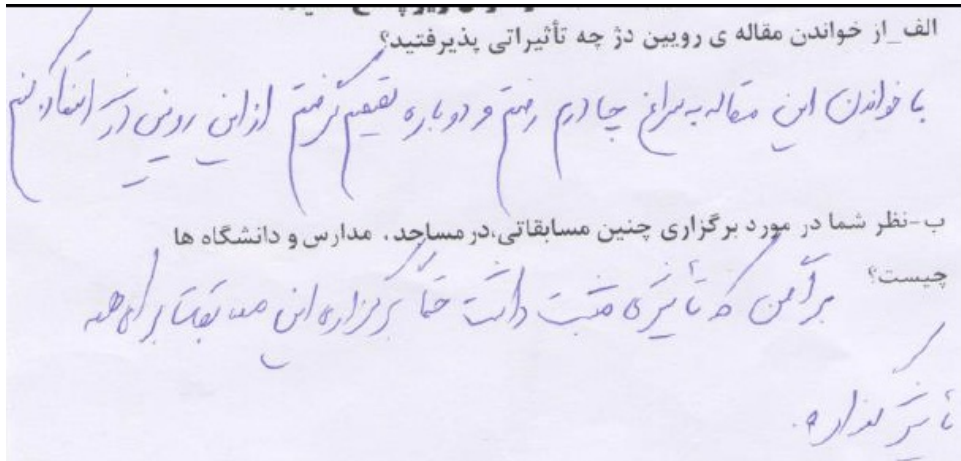 الف_از خواندن مقاله ی رویین دژ چه تأثیراتی پذیرفتید؟
با خواندن این مقاله به سراغ چادرم رفتم و دوباره تصمیم گرفتم از این رویین دژ استفاده کنم
ب-نظر شما در مورد برگزاری چنین مسابقاتی،در مساجد، مدارس و دانشگاه ها
چیست؟
برا من که تأثیری مثبت داشت حتماً برگزاری این مسابقات برای همه
تأثیر گذاره.